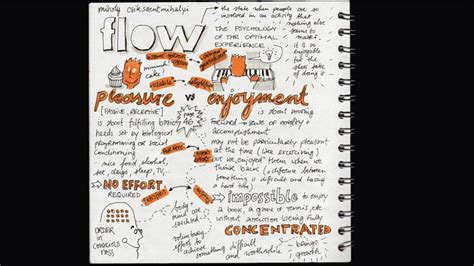 mihaly csikszentmihalyi
flow
the state when people are so
involved in an activity that
nothing else
seems to
matter!
it is so
enjoyable
for the
sheer sake
of doing it
THE PSYCHOLOGY
OF THE OPTIMAL
EXPERIENCE
mmmmh
cake!
pleasure vs enjoyment
page
46
[PASSIVE, RECEPTIVE]
is about fulfilling basic
needs set by biological
programming or social
conditioning
nice food, alcohol,
sex, drugs, sleep, TV,
is about moving
forward → sense of novelty +
accomplishment
may not be particularly pleasant
at the time (like exercising)
but we enjoyed them when we
think back (= difference between
something is difficult and having
a hard time)
NO EFFORT
REQUIRED
impossible to enjoy
a book, a game of tennis, etc
without attention being fully
CONCENTRATED
ORDER
IN
body +
mind are
voluntary
effort to
achieve something difficult
and worthwhile
brings
growth